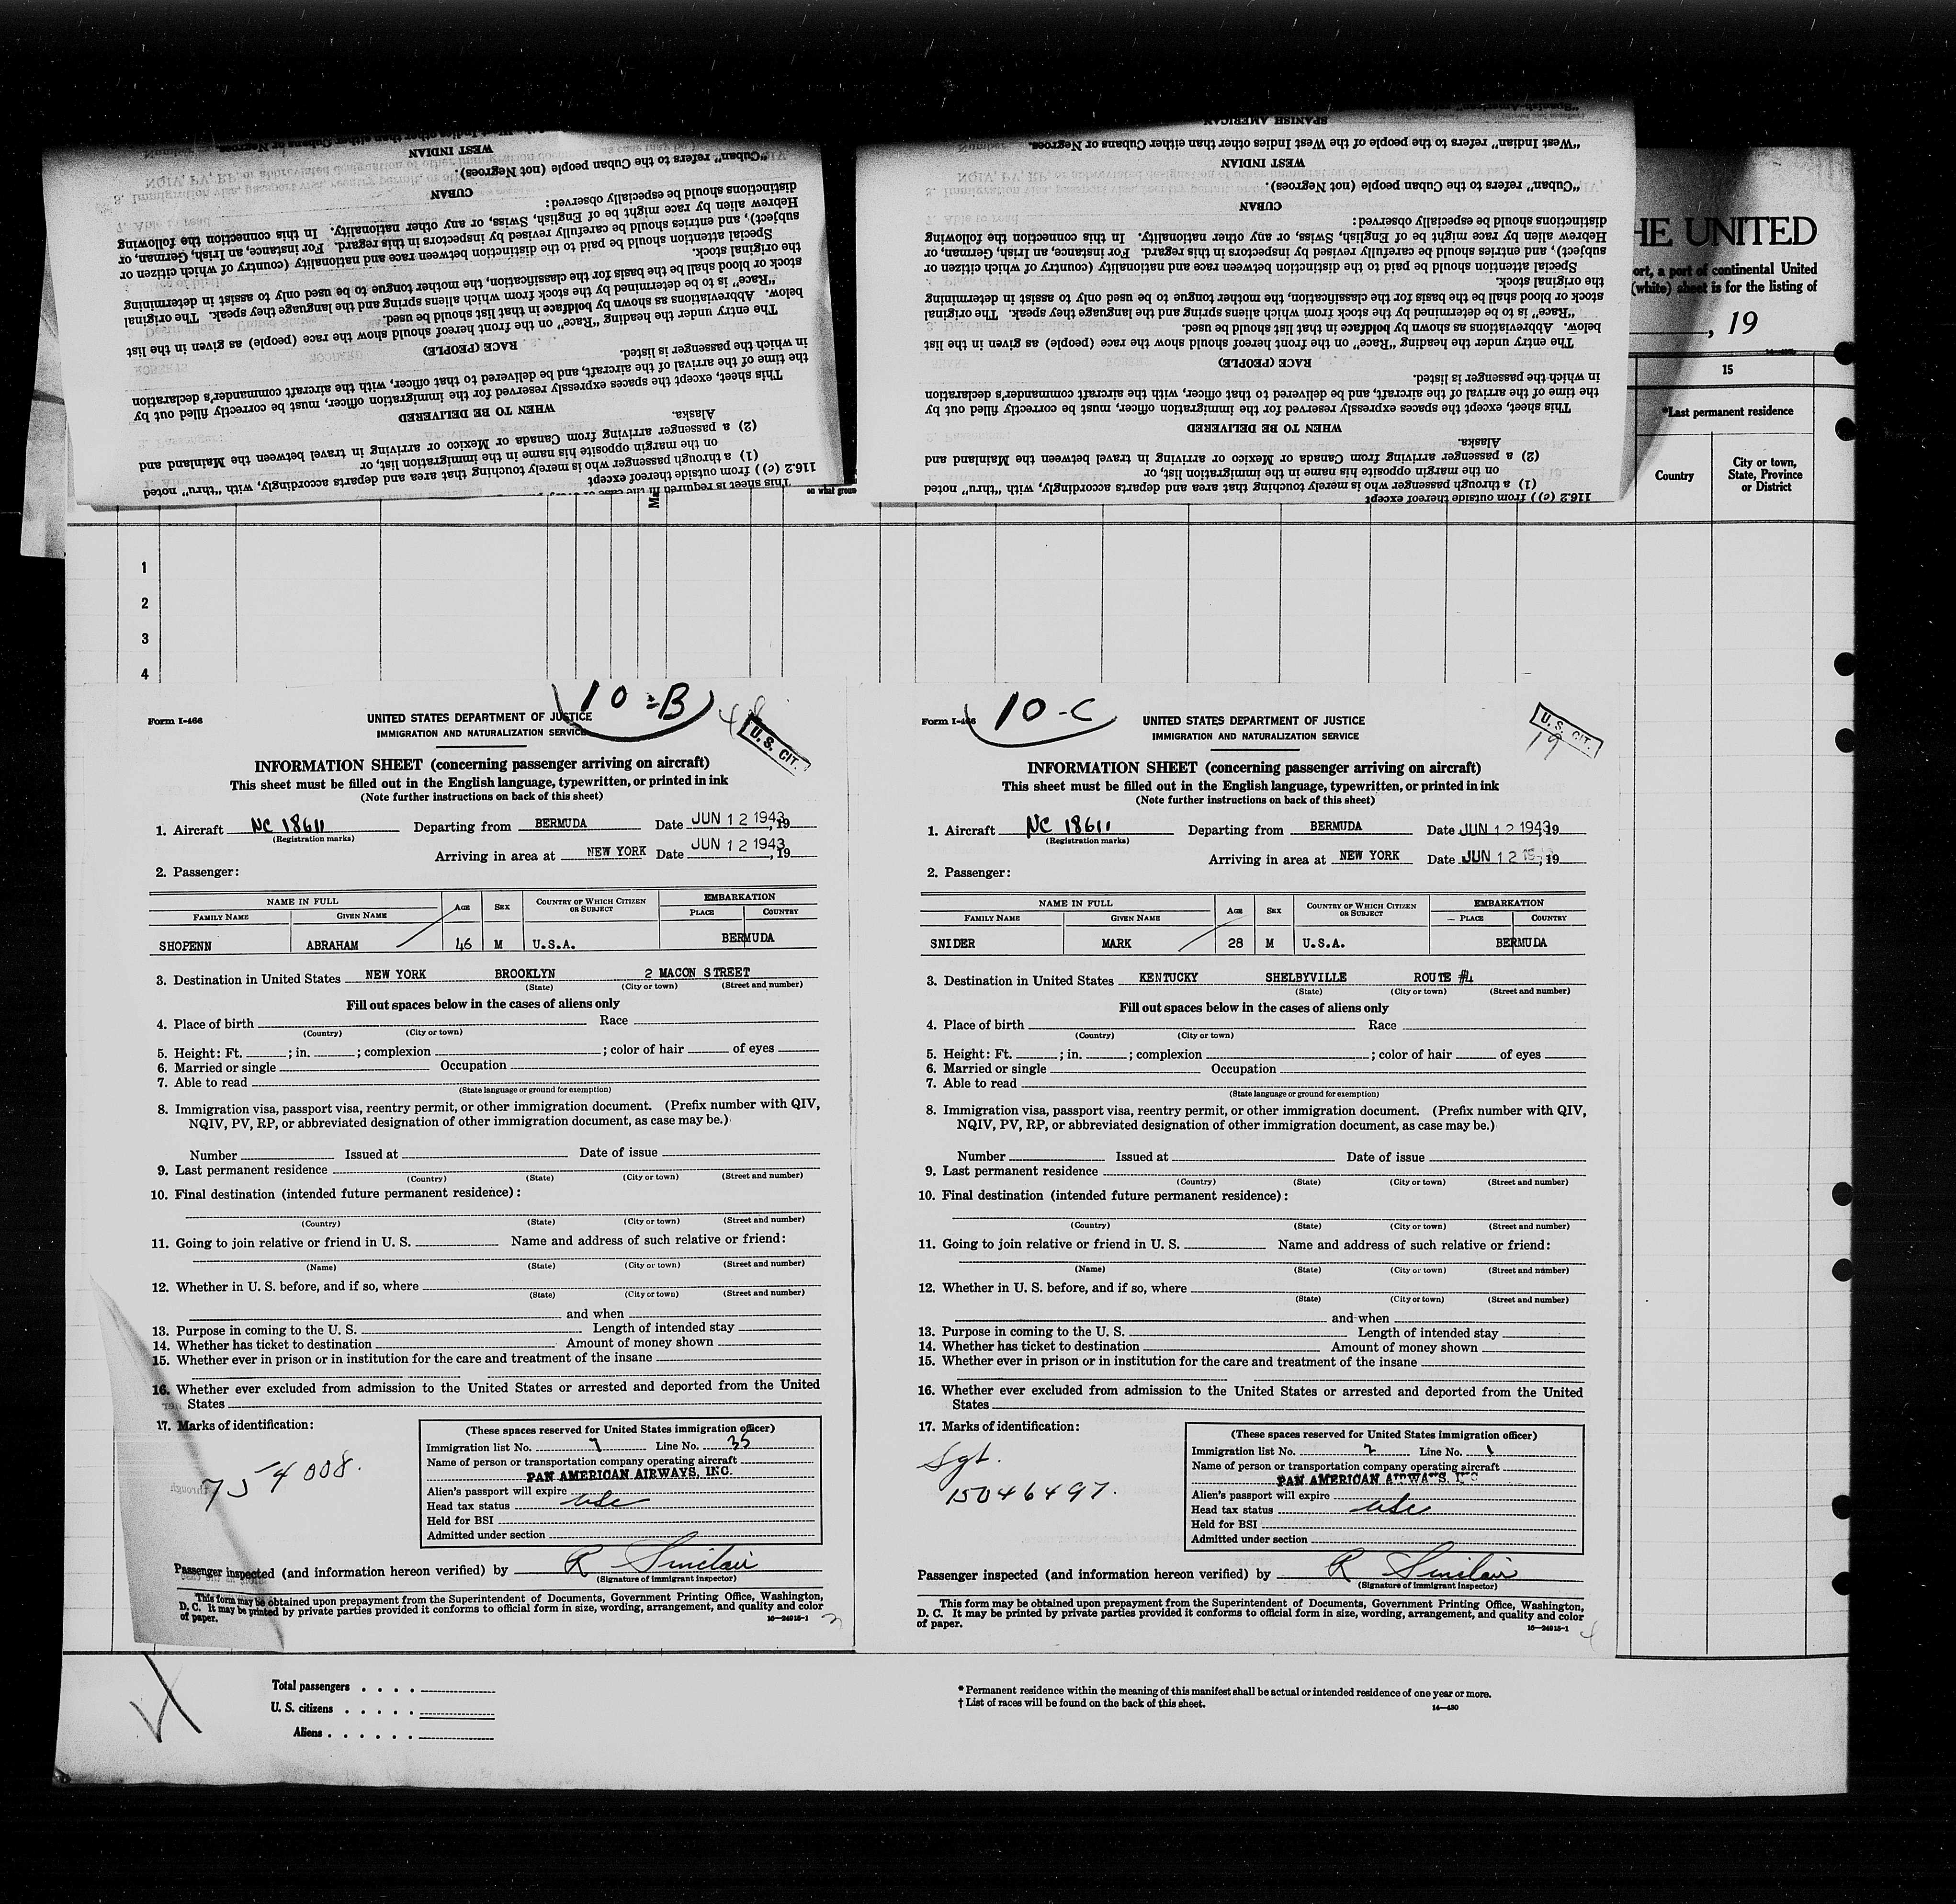 SPANISH AMERICAN
"West Indian" refers to the people of the West Indies other than either Cubans or Negroes.
WEST INDIAN
"Cuban" refers to the Cuban people (not Negroes).
CUBAN
distinctions should be especially observed:
Hebrew alien by race might be of English, Swiss, or any other nationality. In this connection the following
subject), and entries should be carefully revised by inspectors in this regard. For instance, an Irish, German, or
Special attention should be paid to the distinction between race and nationality (country of which citizen or
the original stock.
stock or blood shall be the basis for the classification, the mother tongue to be used only to assist in determining
"Race" is to be determined by the stock from which aliens spring and the language they speak. The original
below. Abbreviations as shown by boldface in that list should be used.
The entry under the heading "Race" on the front hereof should show the race (people) as given in the list
RACE (PEOPLE)
in which the passenger is listed.
the time of the arrival of the aircraft, and be delivered to that officer, with the aircraft commander's declaration
This sheet, except the spaces expressly reserved for the immigration officer, must be correctly filled out by
WHEN TO BE DELIVERED
Alaska.
(2) a passenger arriving from Canada or Mexico or arriving in travel between the Mainland and
on the margin opposite his name in the immigration list, or
(1) a through passenger who is merely touching that area and departs accordingly, with "thru" noted
116.2 (c)) from outside thereof except
HE UNITED
ort, a port of continental United
(white) sheet is for the listing of
, 19
15
*Last permanent residence
Country
City or town,
State, Province
or District
on what groun
1
2
3
4
10-B
Form I-466
UNITED STATES DEPARTMENT OF JUSTICE
IMMIGRATION AND NATURALIZATION SERVICE
U. S. CIT.
INFORMATION SHEET (concerning passenger arriving on aircraft)
This sheet must be filled out in the English language, typewritten, or printed in ink
(Note further instructions on back of this sheet)
1. Aircraft NC 18611 Departing from BERMUDA Date JUN 12 1943, 19
(Registration marks)
Arriving in area at NEW YORK Date JUN 12 1943, 19
2. Passenger:
NAME IN FULL AGE SEX COUNTRY OF WHICH CITIZEN OR SUBJECT EMBARKATION
FAMILY NAME GIVEN NAME PLACE COUNTRY
SHOPENN ABRAHAM 46 M U.S.A. BERMUDA
3. Destination in United States NEW YORK BROOKLYN 2 MACON STREET
(State) (City or town) (Street and number)
Fill out spaces below in the cases of aliens only
4. Place of birth Race
(Country) (City or town)
5. Height: Ft. ; in. ; complexion ; color of hair of eyes
6. Married or single Occupation
7. Able to read
(State language or ground for exemption)
8. Immigration visa, passport visa, reentry permit, or other immigration document. (Prefix number with QIV,
NQIV, PV, RP, or abbreviated designation of other immigration document, as case may be.)
Number Issued at Date of issue
9. Last permanent residence
(Country) (State) (City or town) (Street and number)
10. Final destination (intended future permanent residence):
(Country) (State) (City or town) (Street and number)
11. Going to join relative or friend in U. S. Name and address of such relative or friend:
(Name) (State) (City or town) (Street and number)
12. Whether in U. S. before, and if so, where
(State) (City or town) (Street and number)
and when
13. Purpose in coming to the U. S. Length of intended stay
14. Whether has ticket to destination Amount of money shown
15. Whether ever in prison or in institution for the care and treatment of the insane
16. Whether ever excluded from admission to the United States or arrested and deported from the United
States
17. Marks of identification:
754008.
(These spaces reserved for United States immigration officer)
Immigration list No. 7 Line No. 35
Name of person or transportation company operating aircraft
PAN AMERICAN AIRWAYS, INC.
Alien's passport will expire
Head tax status usc
Held for BSI
Admitted under section
Passenger inspected (and information hereon verified) by R Sinclair
(Signature of immigrant inspector)
This form may be obtained upon prepayment from the Superintendent of Documents, Government Printing Office, Washington,
D. C. It may be printed by private parties provided it conforms to official form in size, wording, arrangement, and quality and color
of paper.
16—24915-1
10-C
Form I-466
UNITED STATES DEPARTMENT OF JUSTICE
IMMIGRATION AND NATURALIZATION SERVICE
U. S. CIT.
19
INFORMATION SHEET (concerning passenger arriving on aircraft)
This sheet must be filled out in the English language, typewritten, or printed in ink
(Note further instructions on back of this sheet)
1. Aircraft NC 18611 Departing from BERMUDA Date JUN 12 1943, 19
(Registration marks)
Arriving in area at NEW YORK Date JUN 12, 19
2. Passenger:
NAME IN FULL AGE SEX COUNTRY OF WHICH CITIZEN OR SUBJECT EMBARKATION
FAMILY NAME GIVEN NAME PLACE COUNTRY
SNIDER MARK 28 M U.S.A. BERMUDA
3. Destination in United States KENTUCKY SHELBYVILLE ROUTE #4
(State) (City or town) (Street and number)
Fill out spaces below in the cases of aliens only
4. Place of birth Race
(Country) (City or town)
5. Height: Ft. ; in. ; complexion ; color of hair of eyes
6. Married or single Occupation
7. Able to read
(State language or ground for exemption)
8. Immigration visa, passport visa, reentry permit, or other immigration document. (Prefix number with QIV,
NQIV, PV, RP, or abbreviated designation of other immigration document, as case may be.)
Number Issued at Date of issue
9. Last permanent residence
(Country) (State) (City or town) (Street and number)
10. Final destination (intended future permanent residence):
(Country) (State) (City or town) (Street and number)
11. Going to join relative or friend in U. S. Name and address of such relative or friend:
(Name) (State) (City or town) (Street and number)
12. Whether in U. S. before, and if so, where
(State) (City or town) (Street and number)
and when
13. Purpose in coming to the U. S. Length of intended stay
14. Whether has ticket to destination Amount of money shown
15. Whether ever in prison or in institution for the care and treatment of the insane
16. Whether ever excluded from admission to the United States or arrested and deported from the United
States
17. Marks of identification:
Sgt.
15046497.
(These spaces reserved for United States immigration officer)
Immigration list No. 2 Line No. 1
Name of person or transportation company operating aircraft
PAN AMERICAN AIRWAYS, INC
Alien's passport will expire
Head tax status usc
Held for BSI
Admitted under section
Passenger inspected (and information hereon verified) by R Sinclair
(Signature of immigrant inspector)
This form may be obtained upon prepayment from the Superintendent of Documents, Government Printing Office, Washington,
D. C. It may be printed by private parties provided it conforms to official form in size, wording, arrangement, and quality and color
of paper.
16—24915-1
Total passengers
U. S. citizens
Aliens
* Permanent residence within the meaning of this manifest shall be actual or intended residence of one year or more.
† List of races will be found on the back of this sheet.
14—430